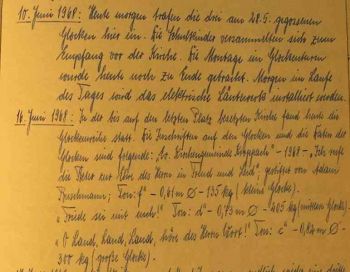 10. Juni 1968: Heute morgen trafen die drei am 28.5. gegossenen
Glocken hier ein. Die Schulkinder versammelten sich zum
Empfang vor der Kirche. Die Montage im Glockenturm
wurde heute noch zu Ende gebracht. Morgen im Laufe
des Tages wird das elektrische Läutewerk installiert werden.
16. Juni 1968: In der bis auf den letzten Platz besetzten Kirche fand heute die
Glockenweihe statt. Die Inschriften auf den Glocken und die Daten der
Glocken sind folgende: "Ev. Kirchengemeinde - 1968 - "Ich rufe
die Treue aus Lob des Herrn in Freud und Leid", gestiftet von Adam
Ton: f" - 0,61 m Ø - 135 kg (kleine Glocke).
"Friede sei mit euch!" Ton: d" - 0,73 m Ø - 205 kg (mittlere Glocke).
"O Land, Land, Land, höre des Herrn Wort!" Ton: c" - 0,82 m Ø -
300 kg (große Glocke).